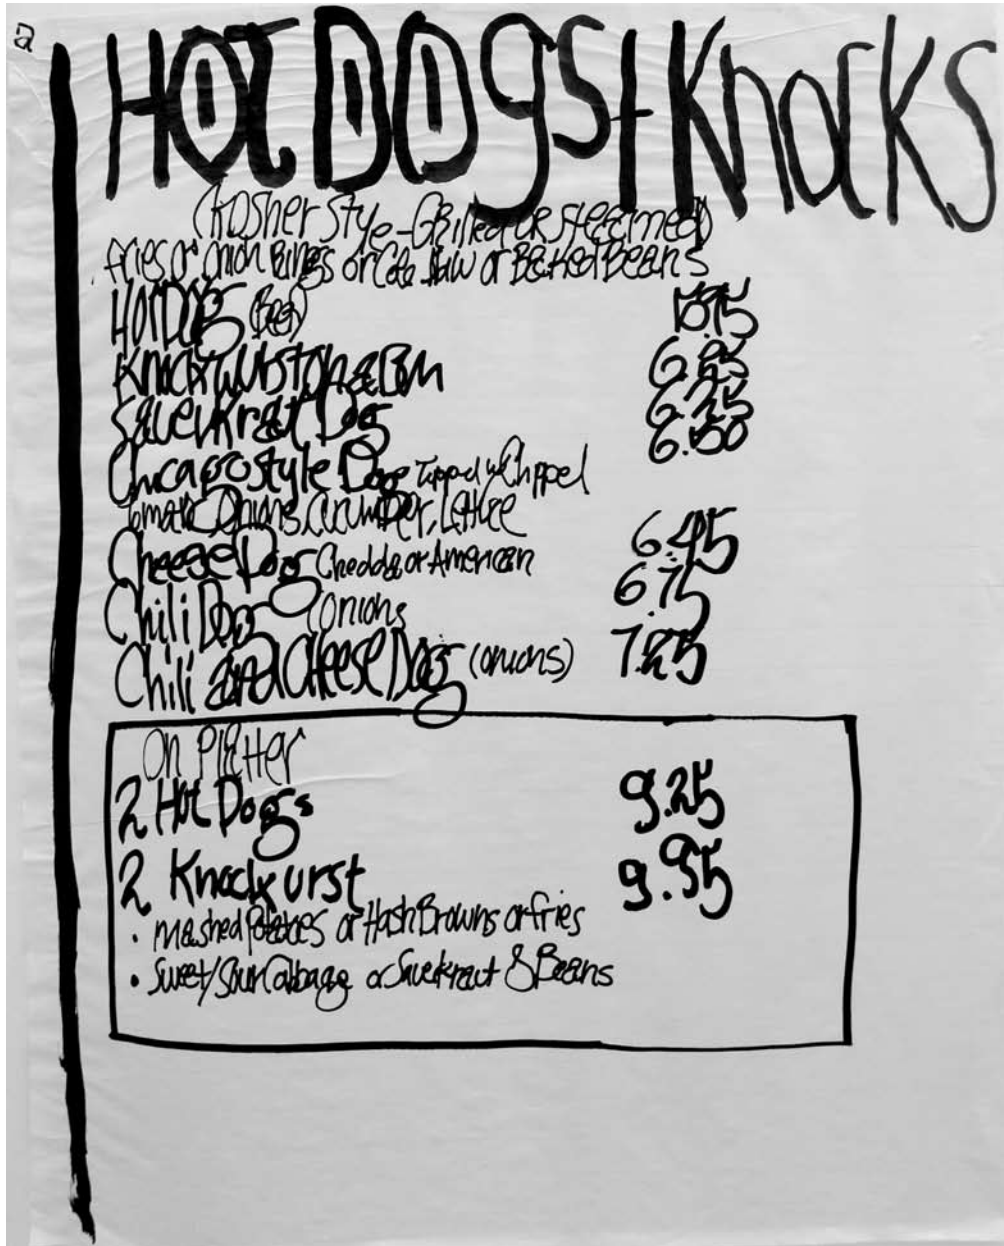 2
HOT DOGS + Knocks
(Kosher Style - Grilled or Steamed)
fries or onion Rings or Cole Slaw or Baked Beans
HOT DOG (Beef)
Knockwurst on a Bun 6.85
Sauerkraut Dog
Chicago style Dog Topped w/ Chpped 6.50
Tomato Onions, Cucumber, Lettuce
Cheese Dog Cheddar or American 6.45
Chili Dog (onions 6.75
Chili and Cheese Dog (onions) 7.25
On Platter
2 Hot Dogs 9.25
2 Knockwurst 9.95
• Mashed Potatoes or Hash Browns or fries
• Sweet/Sour Cabbage or Sauerkraut & Beans